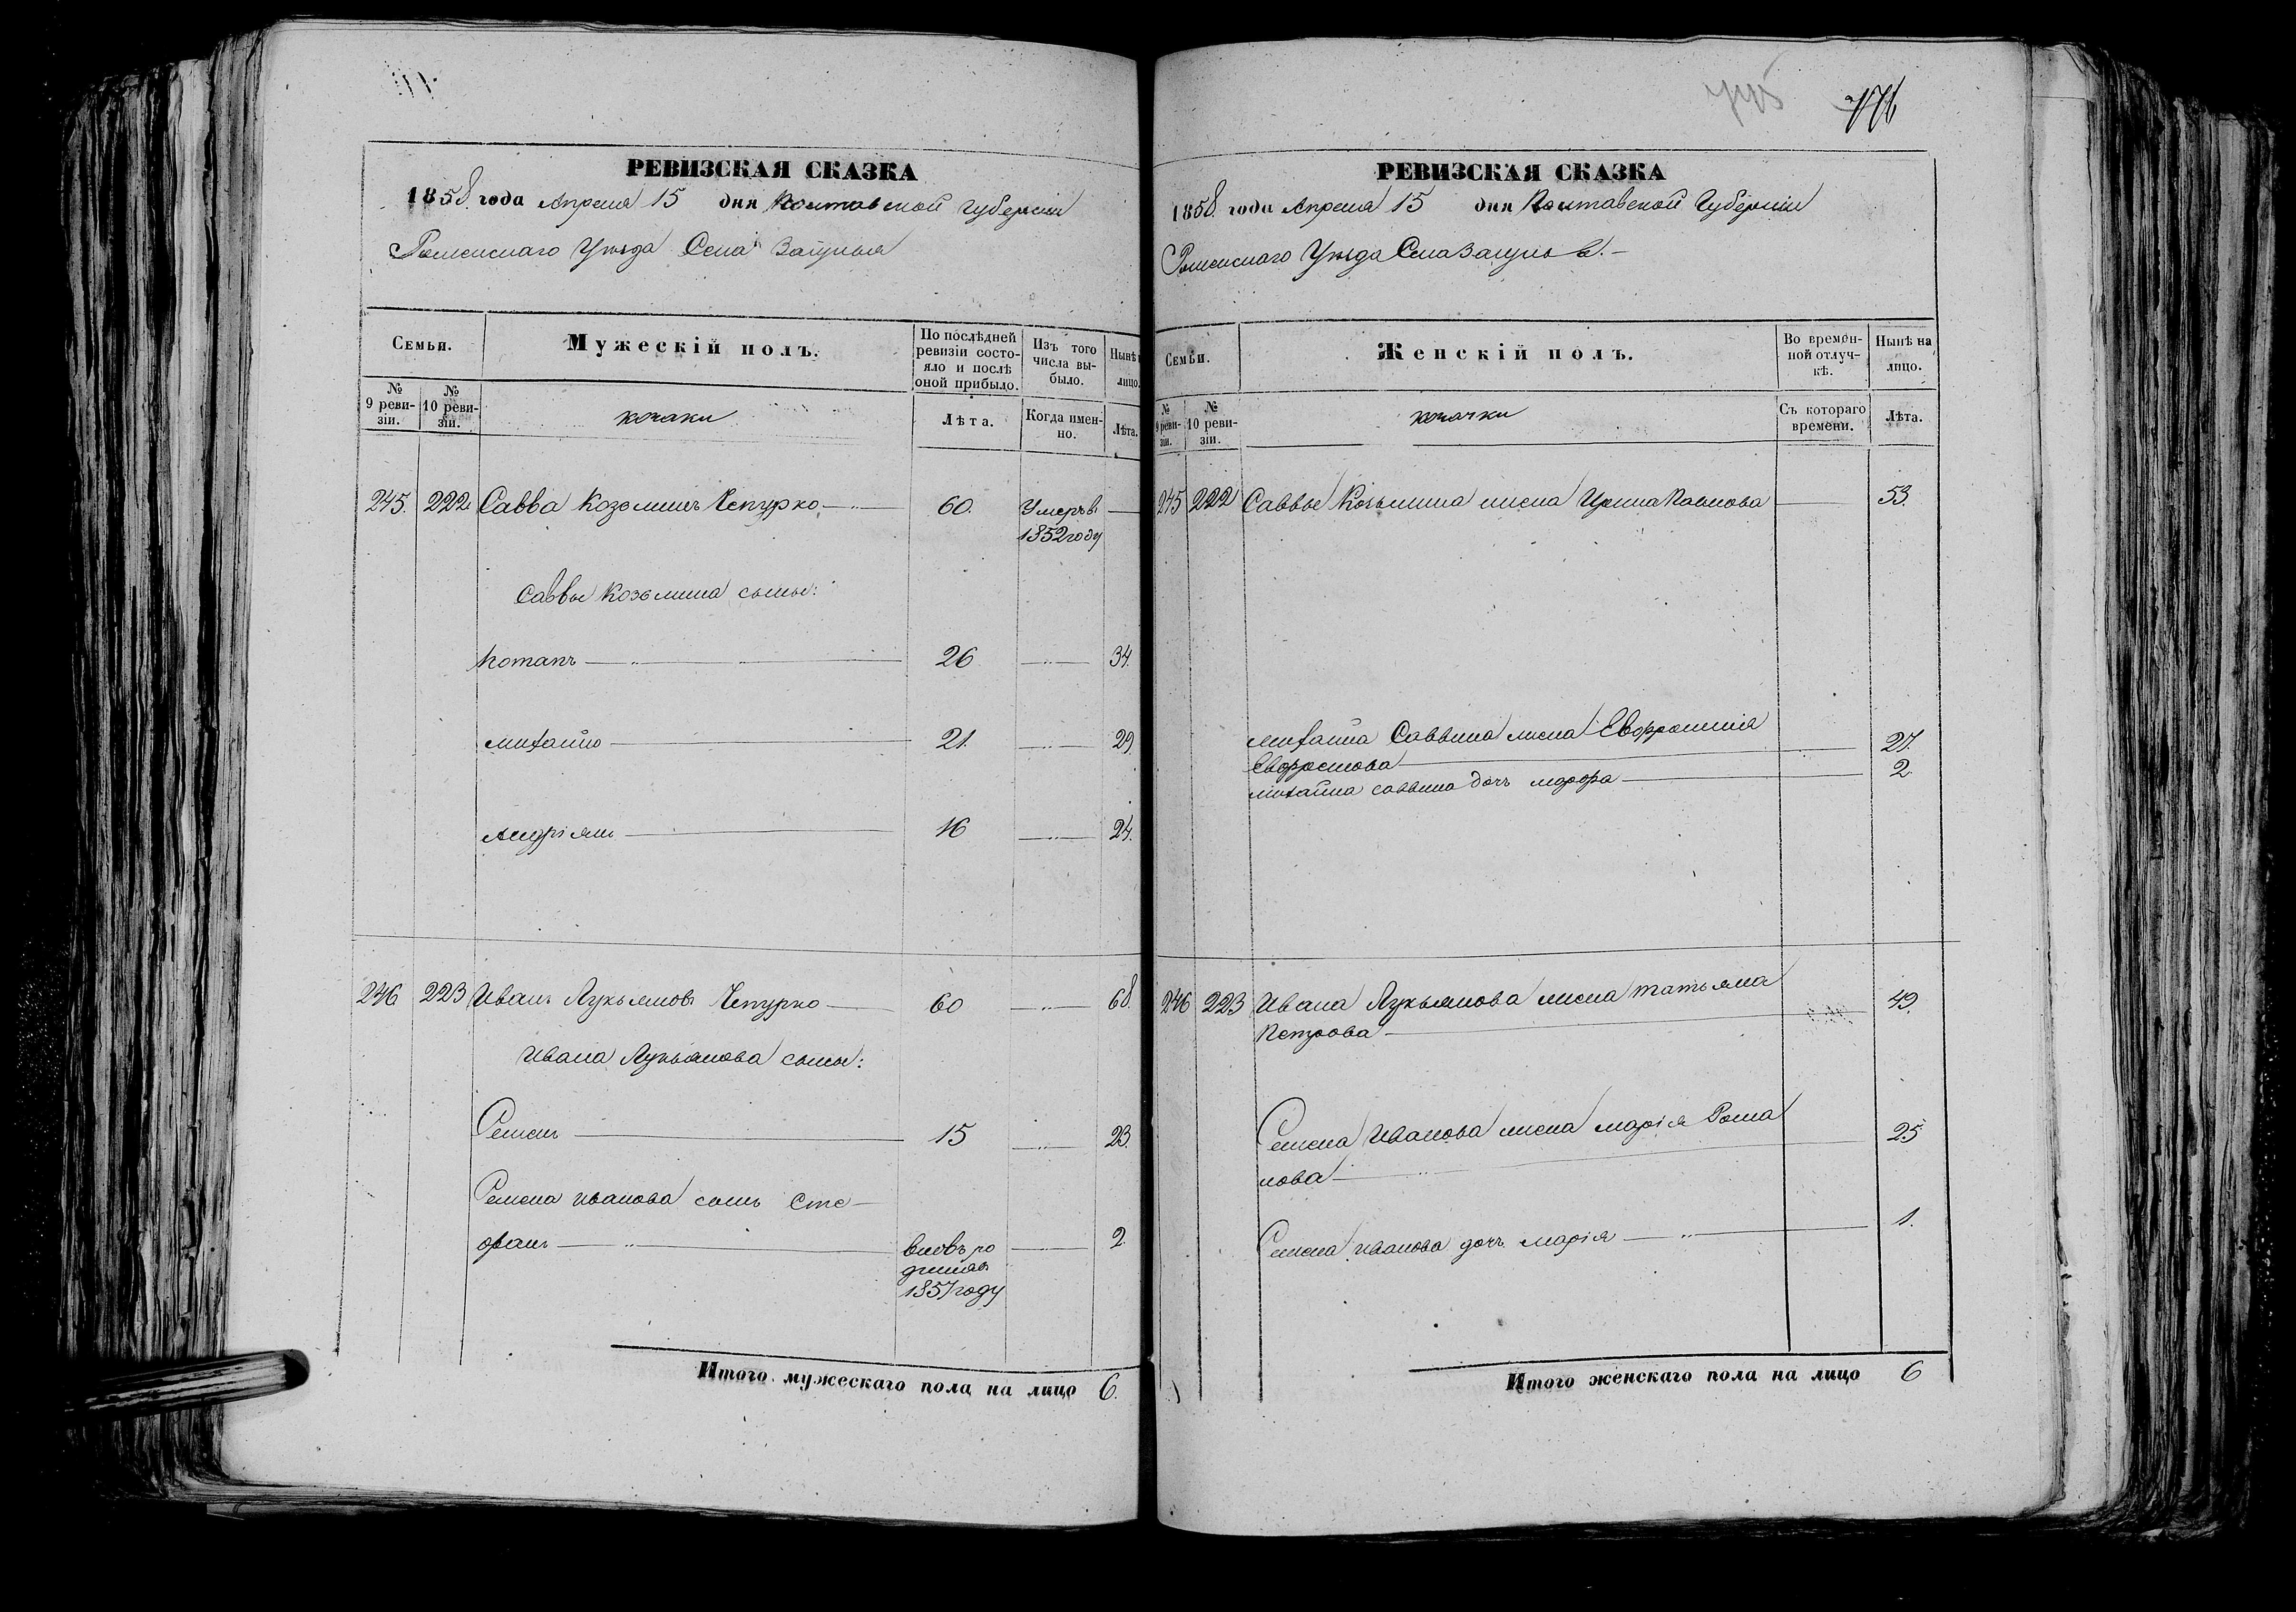 РЕВИЗСКАЯ СКАЗКА
1858 года Апреля 15 дня Полтавской Губернiи
Роменскаго Уѣзда Села
Семьи.
Мужескій полъ.
По послѣдней ревизіи состояло и послѣ оной прибыло.
Изъ того числа выбыло.
Нынѣ
лицо.
№ 9 ревизіи.
№ 10 ревизіи.
козаки
Лѣта.
Когда именно.
Лѣта.
245. 222 Савва Козьминъ Чепурко 60. Умеръ въ
1852 году
Саввы Козьмина сыны:
Потапъ 26 34.
Михайло 21. 29.
Андріянъ 16 24.
246 223 Иванъ Лукьяновъ Чепурко 60 68.
Ивана Лукьянова сыны:
Семенъ 15 23.
Семена Иванова сынъ Сте-
фанъ вновь ро 2.
1857 году
Итого мужескаго пола на лицо 6.
746
РЕВИЗСКАЯ СКАЗКА
1858. года Апреля 15 дня Полтавской Губернiи
Роменскаго Уѣзда Села
Семьи.
Женскій полъ.
Во временной отлучкѣ.
Нынѣ на лицо.
№ 9 ревизіи.
№ 10 ревизіи.
козачки
Съ котораго времени.
Лѣта.
245 222 Саввы Козьмина жена Ирина Павлова 53.
Михайла Саввина жена Евфросинія
27.
Михайла Саввина дочь Марфа 2.
246 223 Ивана Лукьянова жена Татьяна
Петрова 49.
Семена Иванова жена Марія Рома
нова 25
Семена Иванова дочь Марія 1.
Итого женскаго пола на лицо 6